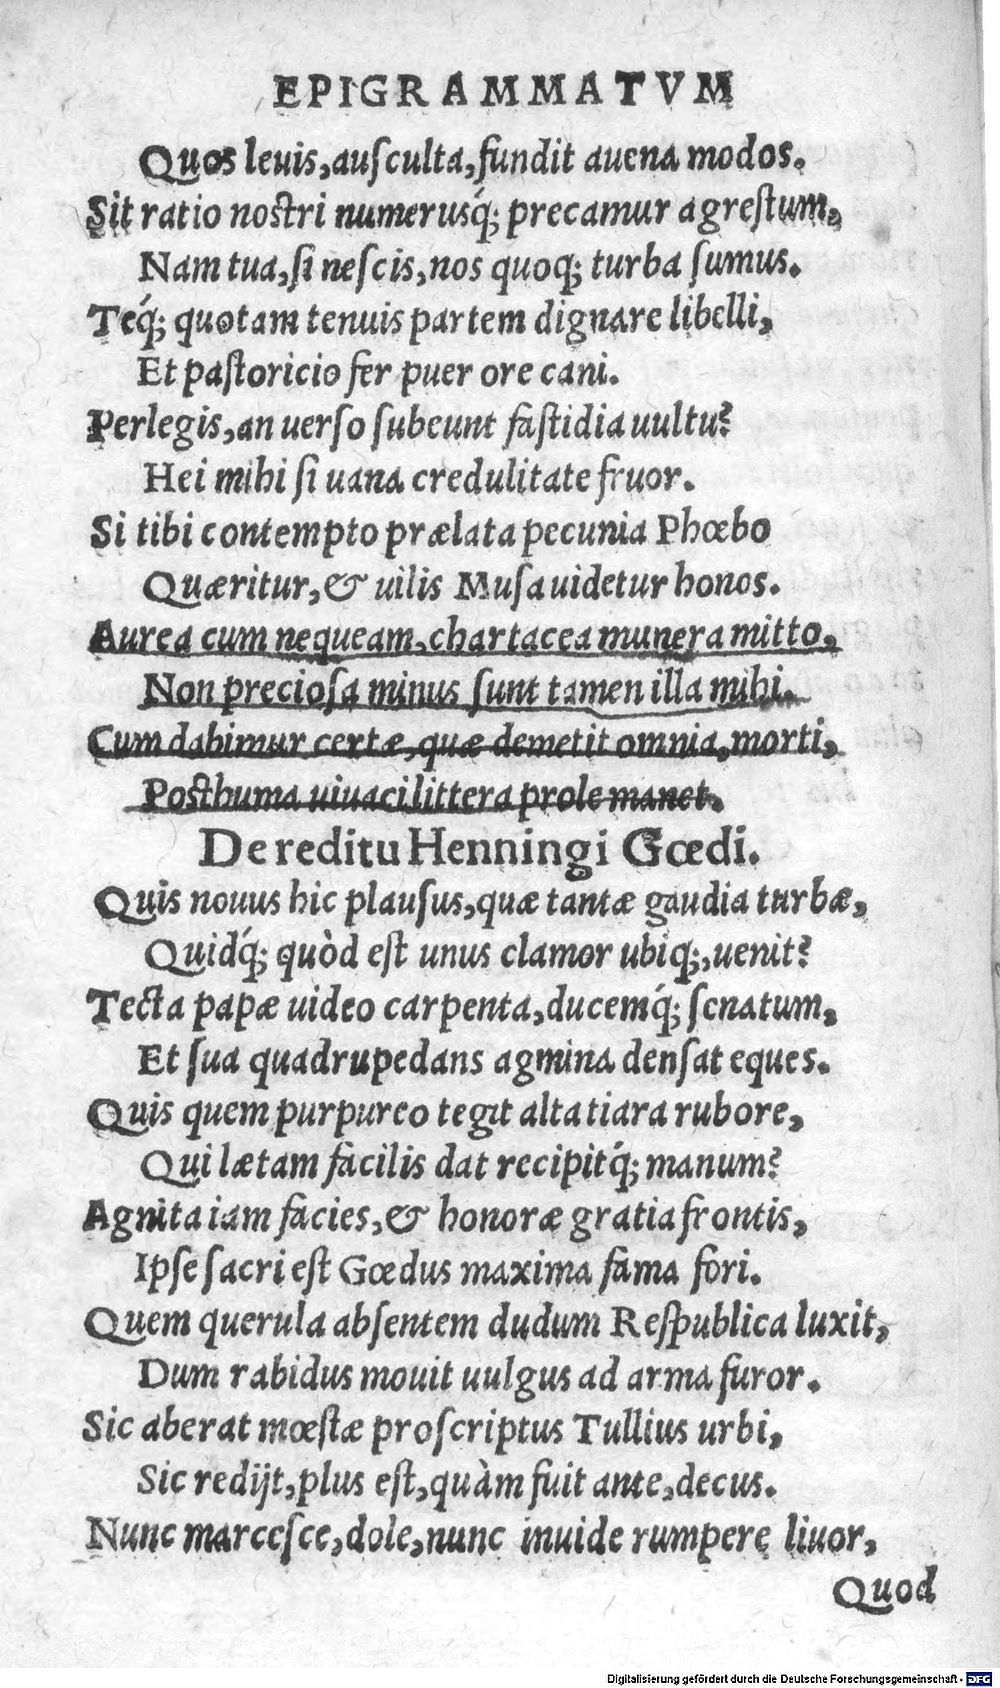 EPIGRAMMATVM
Quos leuis, auſculta, fundit auena modos.
Sit ratio noſtri numerusq́; precamur agreſtum,
Nam tua, ſi neſcis, nos quoq; turba ſumus.
Teq́; quotam tenuis partem dignare libelli,
Et paſtoricio fer puer ore cani.
Perlegis, an uerſo ſubeunt faſtidia uultu?
Hei mihi ſi uana credulitate fruor.
Si tibi contempto prælata pecunia Phœbo
Quæritur, & uilis Muſa uidetur honos.
Aurea cum nequeam, chartacea munera mitto,
Non precioſa minus ſunt tamen illa mihi.
Cum dabimur certæ, quæ demetit omnia, morti,
Poſthuma uiuaci littera prole manet.
De reditu Henningi Gœdi.
Quis nouus hic plauſus, quæ tantæ gaudia turbæ,
Quidq́; quòd eſt unus clamor ubiq;, uenit?
Tecta papæ uideo carpenta, ducemq́; ſenatum,
Et ſua quadrupedans agmina denſat eques.
Quis quem purpureo tegit alta tiara rubore,
Qui lætam facilis dat recipitq́; manum?
Agnita iam facies, & honoræ gratia frontis,
Ipſe ſacri eſt Gœdus maxima fama fori.
Quem querula abſentem dudum Reſpublica luxit,
Dum rabidus mouit uulgus ad arma furor.
Sic aberat mœſtæ proſcriptus Tullius urbi,
Sic redijt, plus eſt, quàm fuit ante, decus.
Nunc marceſce, dole, nunc inuide rumpere liuor,
Quod
Digitalisierung gefördert durch die Deutsche Forschungsgemeinschaft - DFG